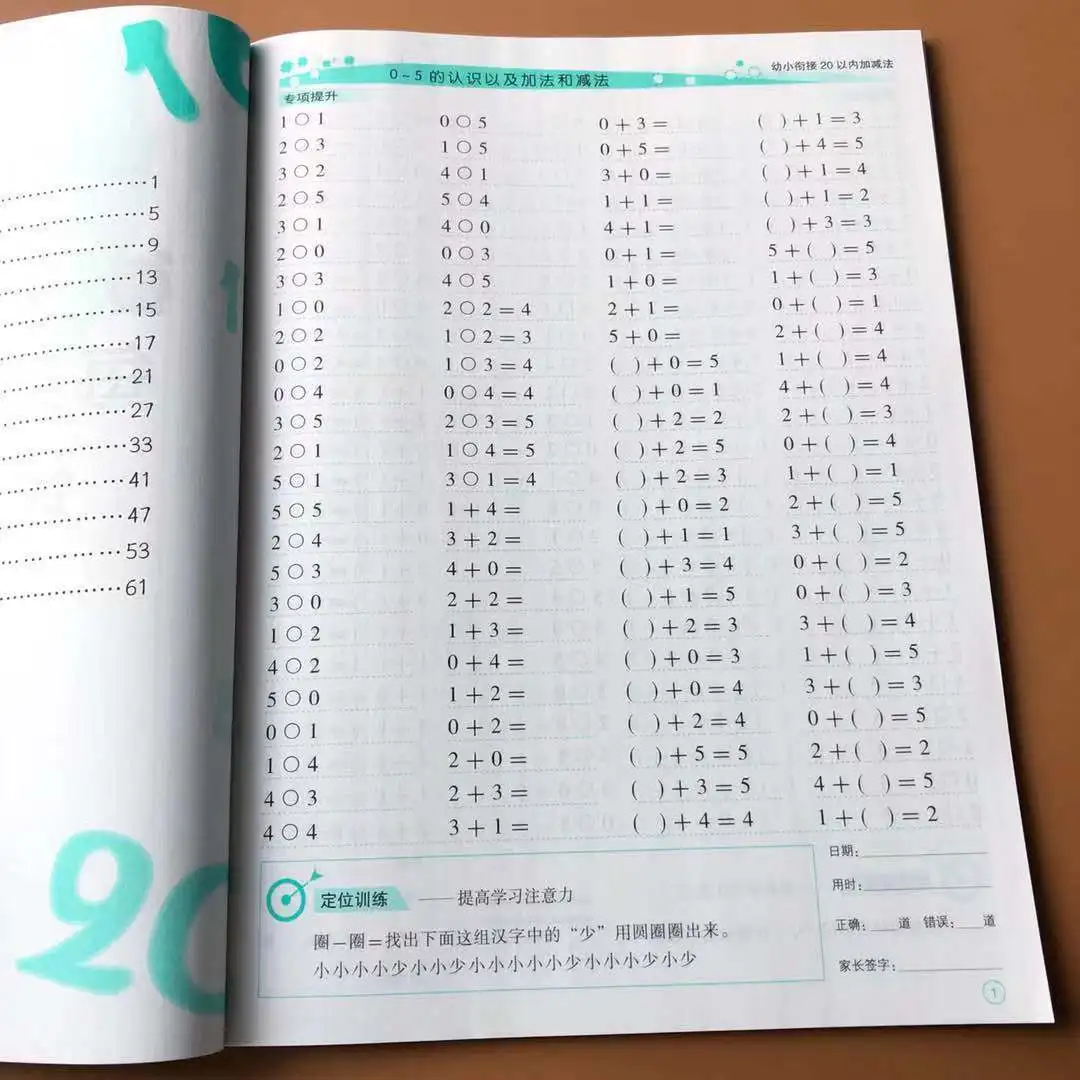 10
1
20
…………………1
…………………5
…………………9
…………………13
…………………15
…………………17
…………………21
…………………27
…………………33
…………………41
…………………47
…………………53
…………………61
0~5的认识以及加法和减法
幼小衔接 20 以内加减法
专项提升
1○1 0○5 0+3= ( )+1=3
2○3 1○5 0+5= ( )+4=5
3○2 4○1 3+0= ( )+1=4
2○5 5○4 1+1= ( )+1=2
3○1 4○0 4+1= ( )+3=3
2○0 0○3 0+1= 5+( )=5
3○3 4○5 1+0= 1+( )=3
1○0 2○2=4 2+1= 0+( )=1
2○2 1○2=3 5+0= 2+( )=4
0○2 1○3=4 ( )+0=5 1+( )=4
0○4 0○4=4 ( )+0=1 4+( )=4
3○5 2○3=5 ( )+2=2 2+( )=3
2○1 1○4=5 ( )+2=5 0+( )=4
5○1 3○1=4 ( )+2=3 1+( )=1
5○5 1+4= ( )+0=2 2+( )=5
2○4 3+2= ( )+1=1 3+( )=5
5○3 4+0= ( )+3=4 0+( )=2
3○0 2+2= ( )+1=5 0+( )=3
1○2 1+3= ( )+2=3 3+( )=4
4○2 0+4= ( )+0=3 1+( )=5
5○0 1+2= ( )+0=4 3+( )=3
0○1 0+2= ( )+2=4 0+( )=5
1○4 2+0= ( )+5=5 2+( )=2
4○3 2+3= ( )+3=5 4+( )=5
4○4 3+1= ( )+4=4 1+( )=2
定位训练 ——提高学习注意力
圈一圈=找出下面这组汉字中的“少”用圆圈圈出来。
小小小小少小小少小小小小小少小小小少小少
日期:
用时:
正确:___道 错误:___道
家长签字:
1